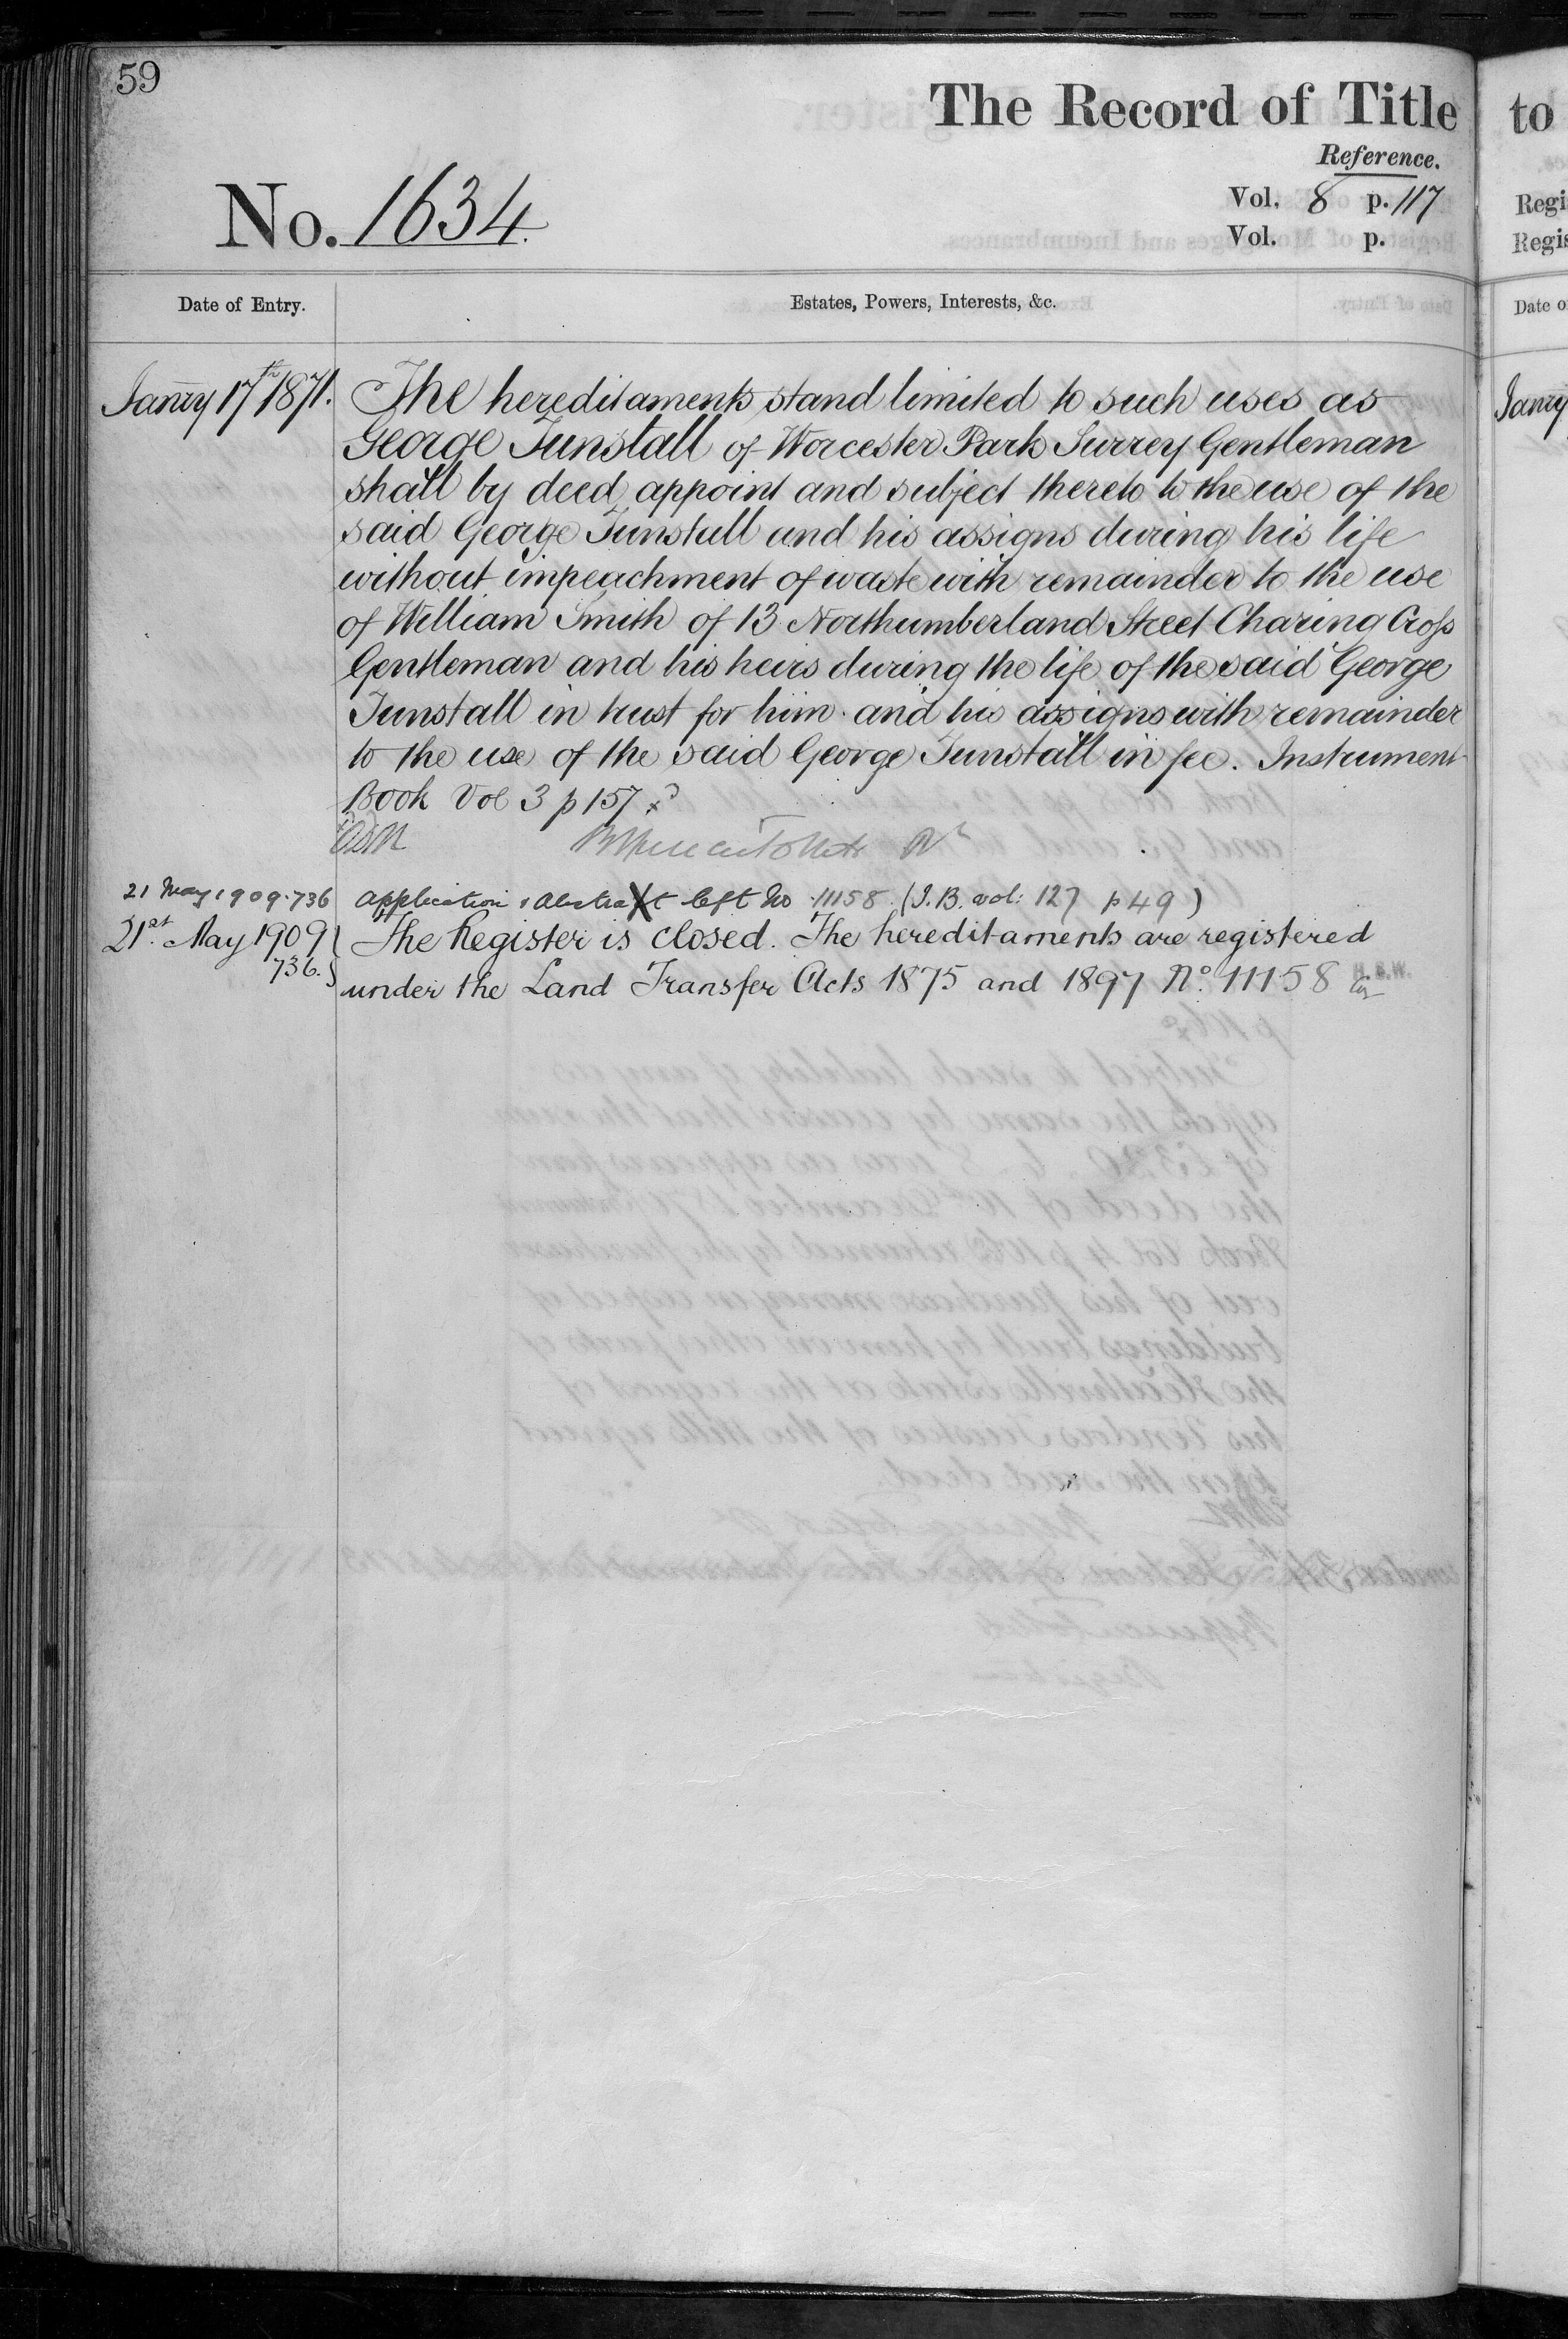 59
The Record of Title
Reference.
No. 1634.
Vol. 8 p. 117
Vol. p.
Date of Entry.
Estates, Powers, Interests, &c.
Janry 17th 1871.
The hereditaments stand limited to such uses as
George Tunstall of Worcester Park Surrey Gentleman
shall by deed appoint and subject thereto to the use of the
said George Tunstall and his assigns during his life
without impeachment of waste with remainder to the use
of William Smith of 13 Northumberland Street Charing Cross
Gentleman and his heirs during the life of the said George
Tunstall in trust for him and his assigns with remainder
to the use of the said George Tunstall in fee. Instrument
Book Vol 3 p 157
21 May 1909. 736
application & Abstract left No 11158. (I.B. vol: 127 p 49)
21st. May 1909
736.
The Register is closed. The hereditaments are registered
under the Land Transfer Acts 1875 and 1897 No. 11158
to
Regi
Regis
Date o
Janry